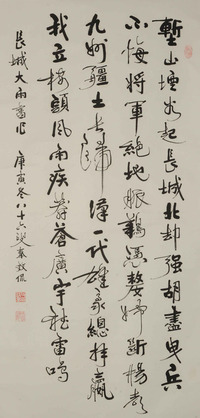 塹山堙谷起長城北却强胡盡曳兵
不悔將軍絕地脈難憑嫠婦斷腸聲
九州疆土長歸漢一代雄豪總拜嬴
我立樓頭風雨疾莽蒼廣宇秋雷鳴
長城大雨 庚寅冬八十六叟秦效侃